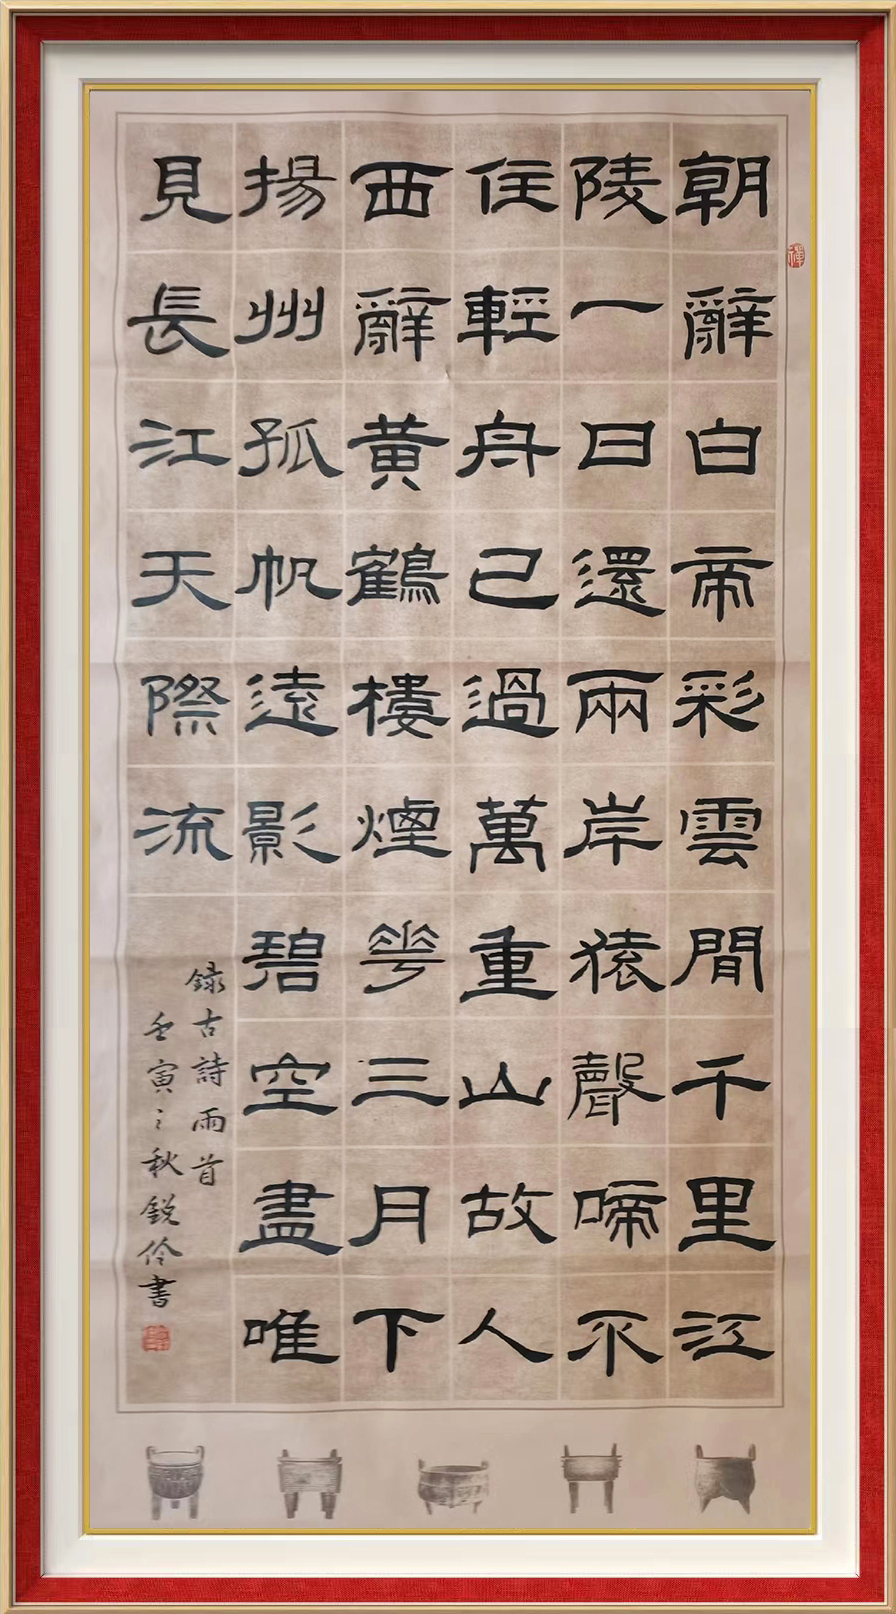 朝辭白帝彩雲間千里江
陵一日還兩岸猿聲啼不
住輕舟已過萬重山故人
西辭黃鶴樓煙花三月下
揚州孤帆遠影碧空盡唯
見長江天際流
録古詩兩首
壬寅之秋銳伶書